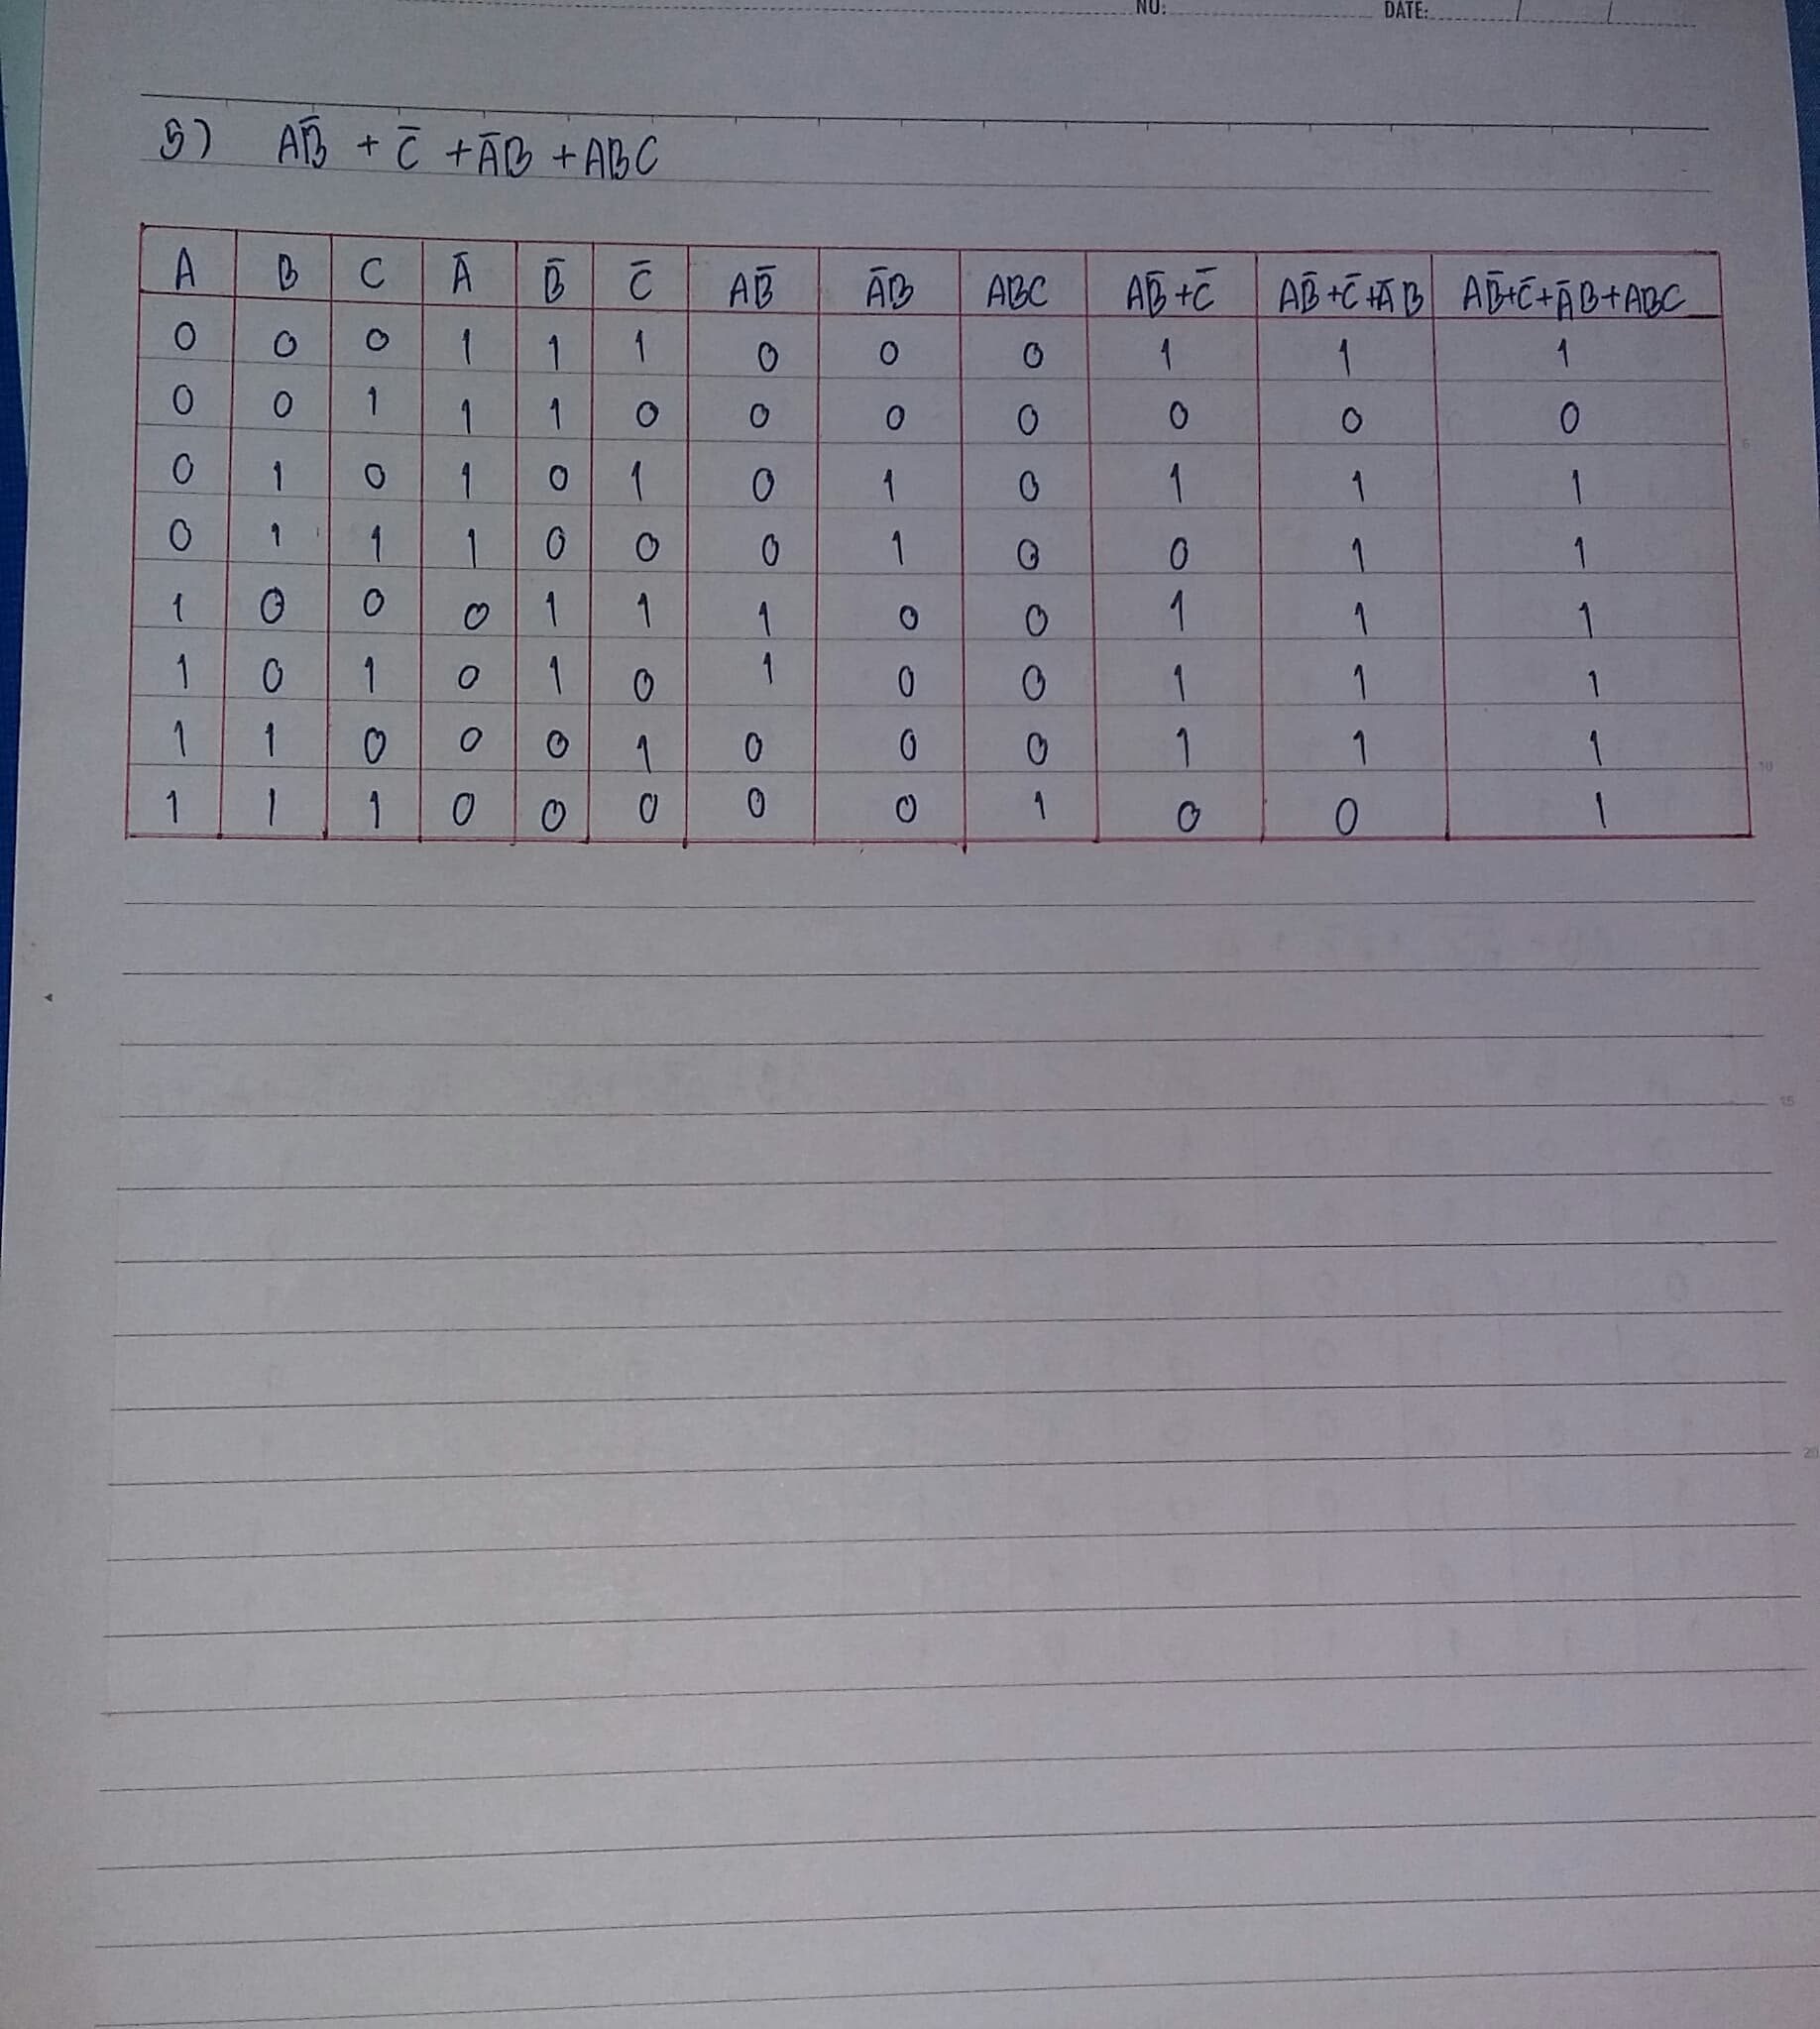 NO: DATE: / /
5) AB̅ + C̅ + A̅B + ABC
A B C A̅ B̅ C̅ AB̅ A̅B ABC AB̅+C̅ AB̅+C̅+A̅B AB̅+C̅+A̅B+ABC
0 0 0 1 1 1 0 0 0 1 1 1
0 0 1 1 1 0 0 0 0 0 0 0
0 1 0 1 0 1 0 1 0 1 1 1
0 1 1 1 0 0 0 1 0 0 1 1
1 0 0 0 1 1 1 0 0 1 1 1
1 0 1 0 1 0 1 0 0 1 1 1
1 1 0 0 0 1 0 0 0 1 1 1
1 1 1 0 0 0 0 0 1 0 0 1
5
10
15
20